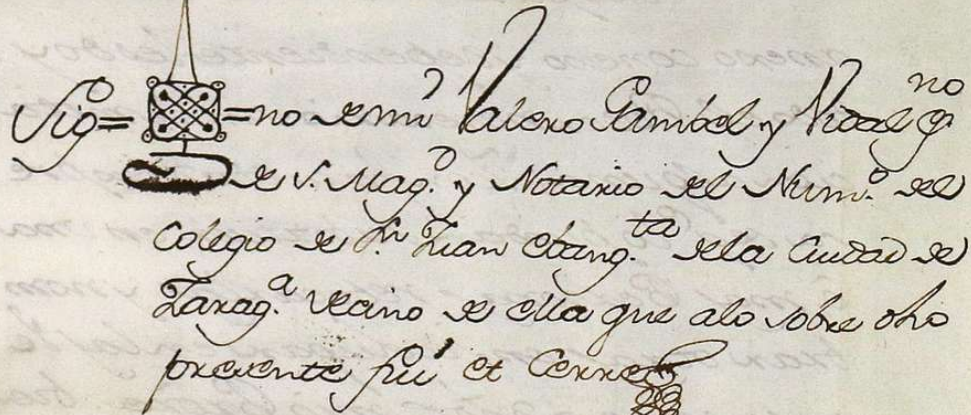 Sig= =no de mi Valero Gambel y Vidal
de S. Mag.d y Notario del Num.o del
Colegio de Sn Juan Evang.ta dela Ciudad de
Zarag.a vecino de ella que alo sobre dho
presente fui et Cerre